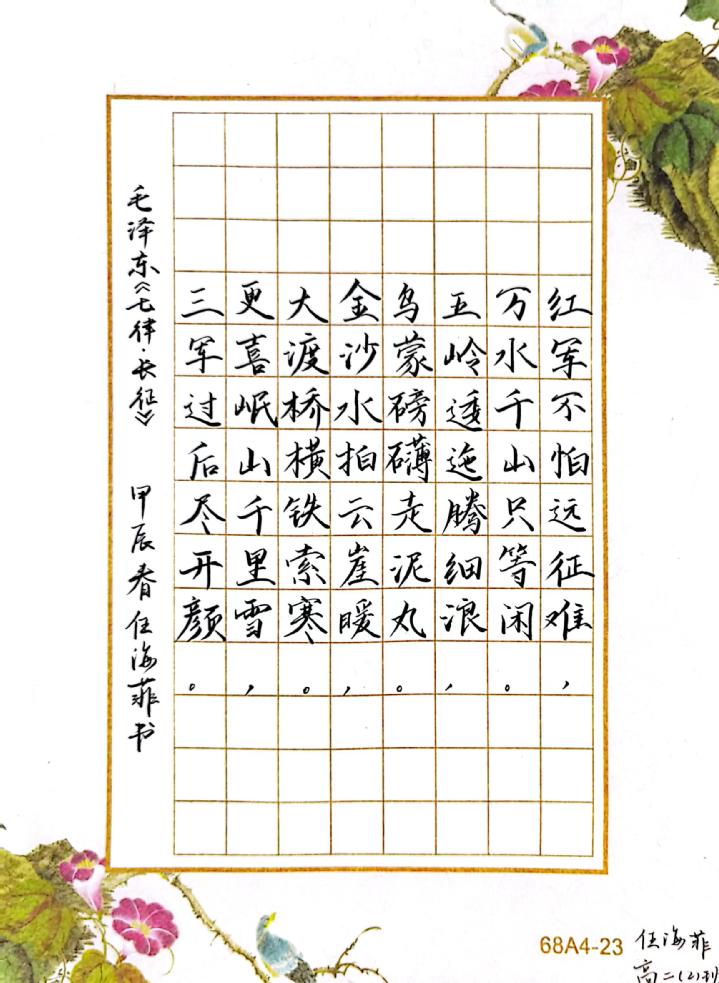 红军不怕远征难，
万水千山只等闲。
五岭逶迤腾细浪，
乌蒙磅礴走泥丸。
金沙水拍云崖暖，
大渡桥横铁索寒。
更喜岷山千里雪，
三军过后尽开颜。
毛泽东《七律·长征》 甲辰春任海菲书
68A4-23
任海菲
高二(2)班